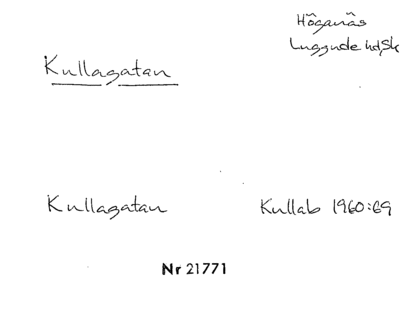 Höganäs
Luggude hd, Sk
Kullagatan
Kullagatan Kullab 1960:69
Nr 21771